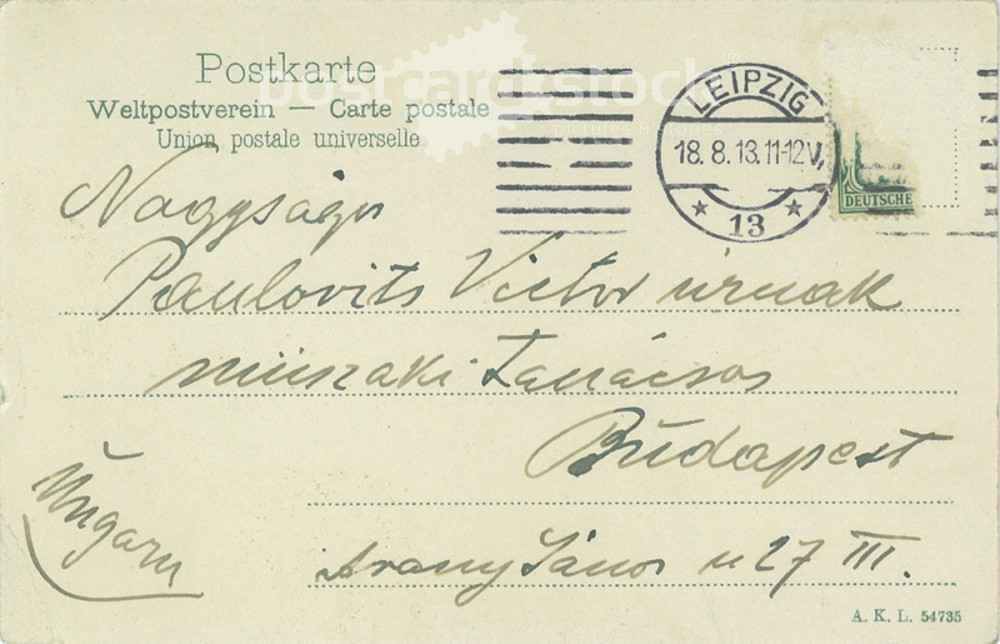 Postkarte
Weltpostverein — Carte postale
Union postale universelle
postcard stock
pictures & stories
LEIPZIG
18. 8. 13. 11-12V.
★ 13 ★
DEUTSCHE
Nagyságu
Paulovits Victor úrnak
műszaki tanácsos
Budapest
Ungarn
Arany János u 27 III.
A. K. L. 54735